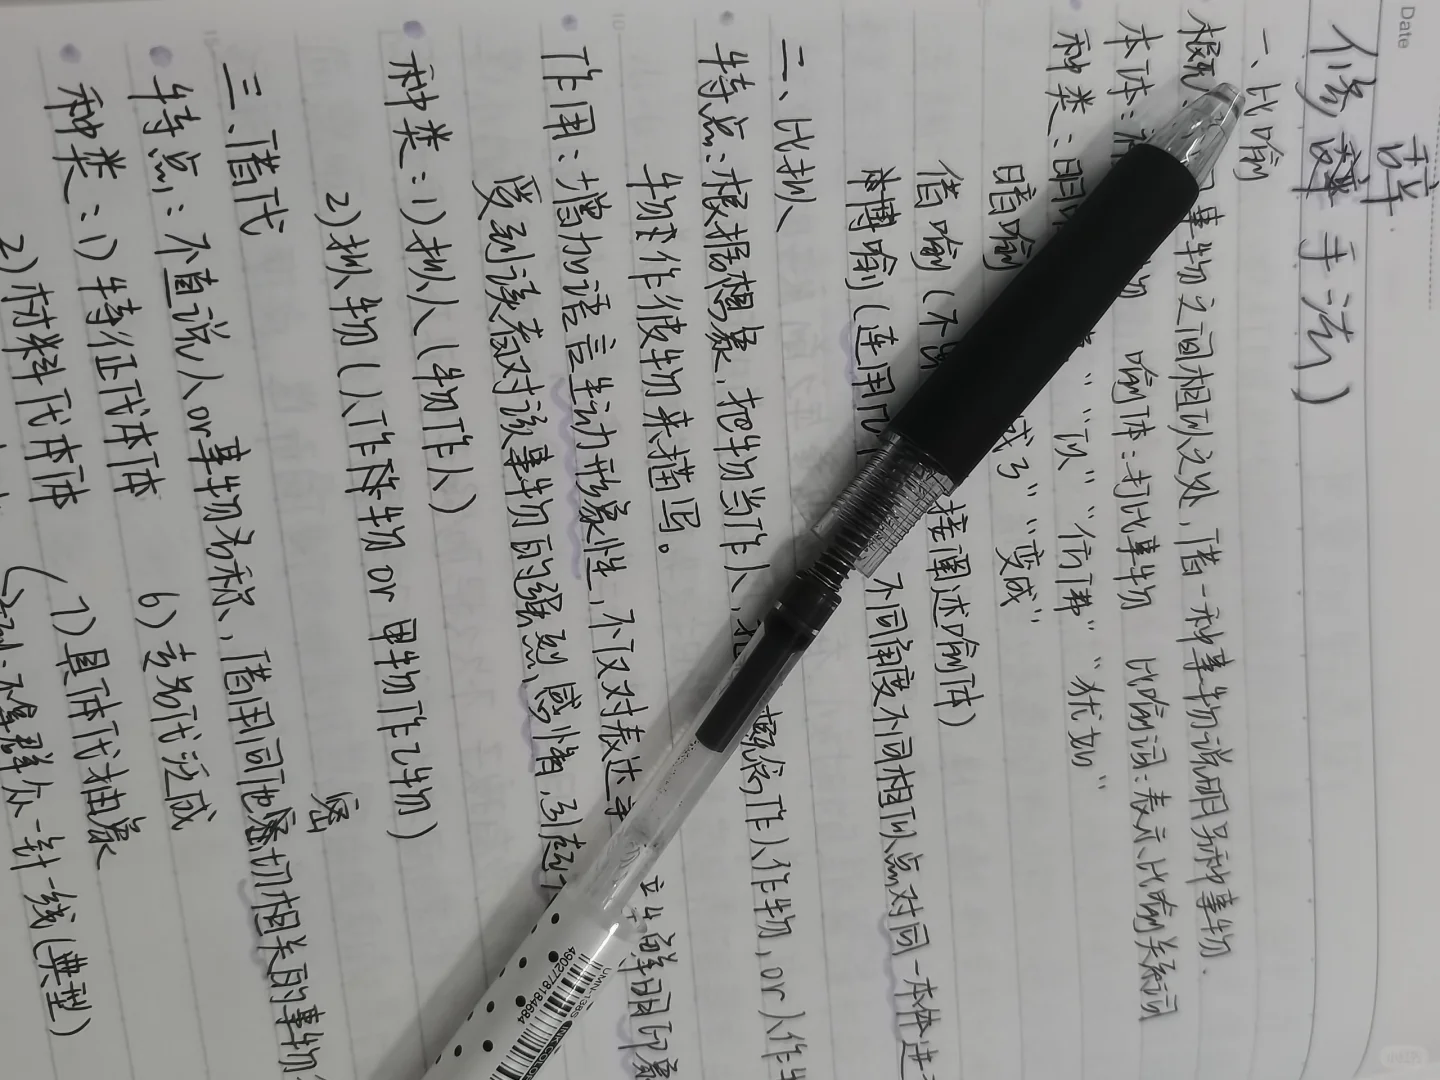 Date
修辞手法)
辞
一、比喻
概 事物之间相似之处,借一种事物说明另种事物.
本体: 物 喻体:打比事物 比喻词:表示比喻关系词
种类:明 " "似" "仿佛" "犹如"
暗喻 成了" "变成"
借喻(不 接阐述喻体)
博喻(连用 不同角度不同相似点对同一本体进
二、比拟
特点:根据想象,把物当作人, 概念,作人作物,or人作
物 作彼物来描写。
作用:增加语言生动形象性,不仅对表达 立鲜明印象
受到读者对该事物的强烈感情,引起
种类:1)拟人(物作人)
2)拟物(人作物 or 甲物作乙物)
三、借代
密
特点:不直说人or事物名称,借用同他 切相关的事物
种类:1)特征代本体 6)专名代泛成
2)材料代本体 7)具体代抽象
不拿群众一针一线(典型)
UMN-138S
4902778184684
小红书